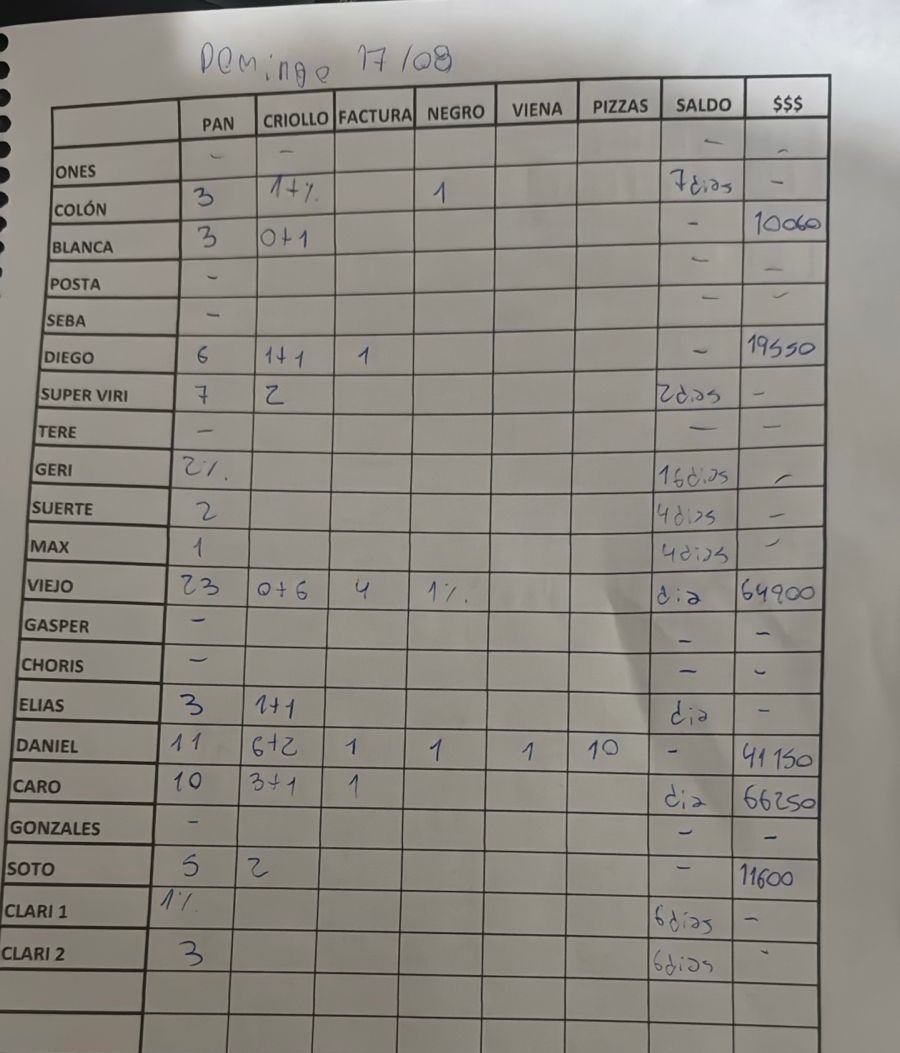 Domingo 17/08
PAN CRIOLLO FACTURA NEGRO VIENA PIZZAS SALDO $$$
ONES - - - -
COLÓN 3 1+% 1 7dias -
BLANCA 3 0+1 - 10060
POSTA - - -
SEBA - - -
DIEGO 6 1+1 1 - 19550
SUPER VIRI 7 2 2dias -
TERE - - -
GERI 2%. 16dias -
SUERTE 2 4dias -
MAX 1 4dias -
VIEJO 23 0+6 4 1%. dia 64900
GASPER - - -
CHORIS - - -
ELIAS 3 1+1 dia -
DANIEL 11 6+2 1 1 1 10 - 41150
CARO 10 3+1 1 dia 66250
GONZALES - - -
SOTO 5 2 - 11600
CLARI 1 1% 6dias -
CLARI 2 3 6dias -